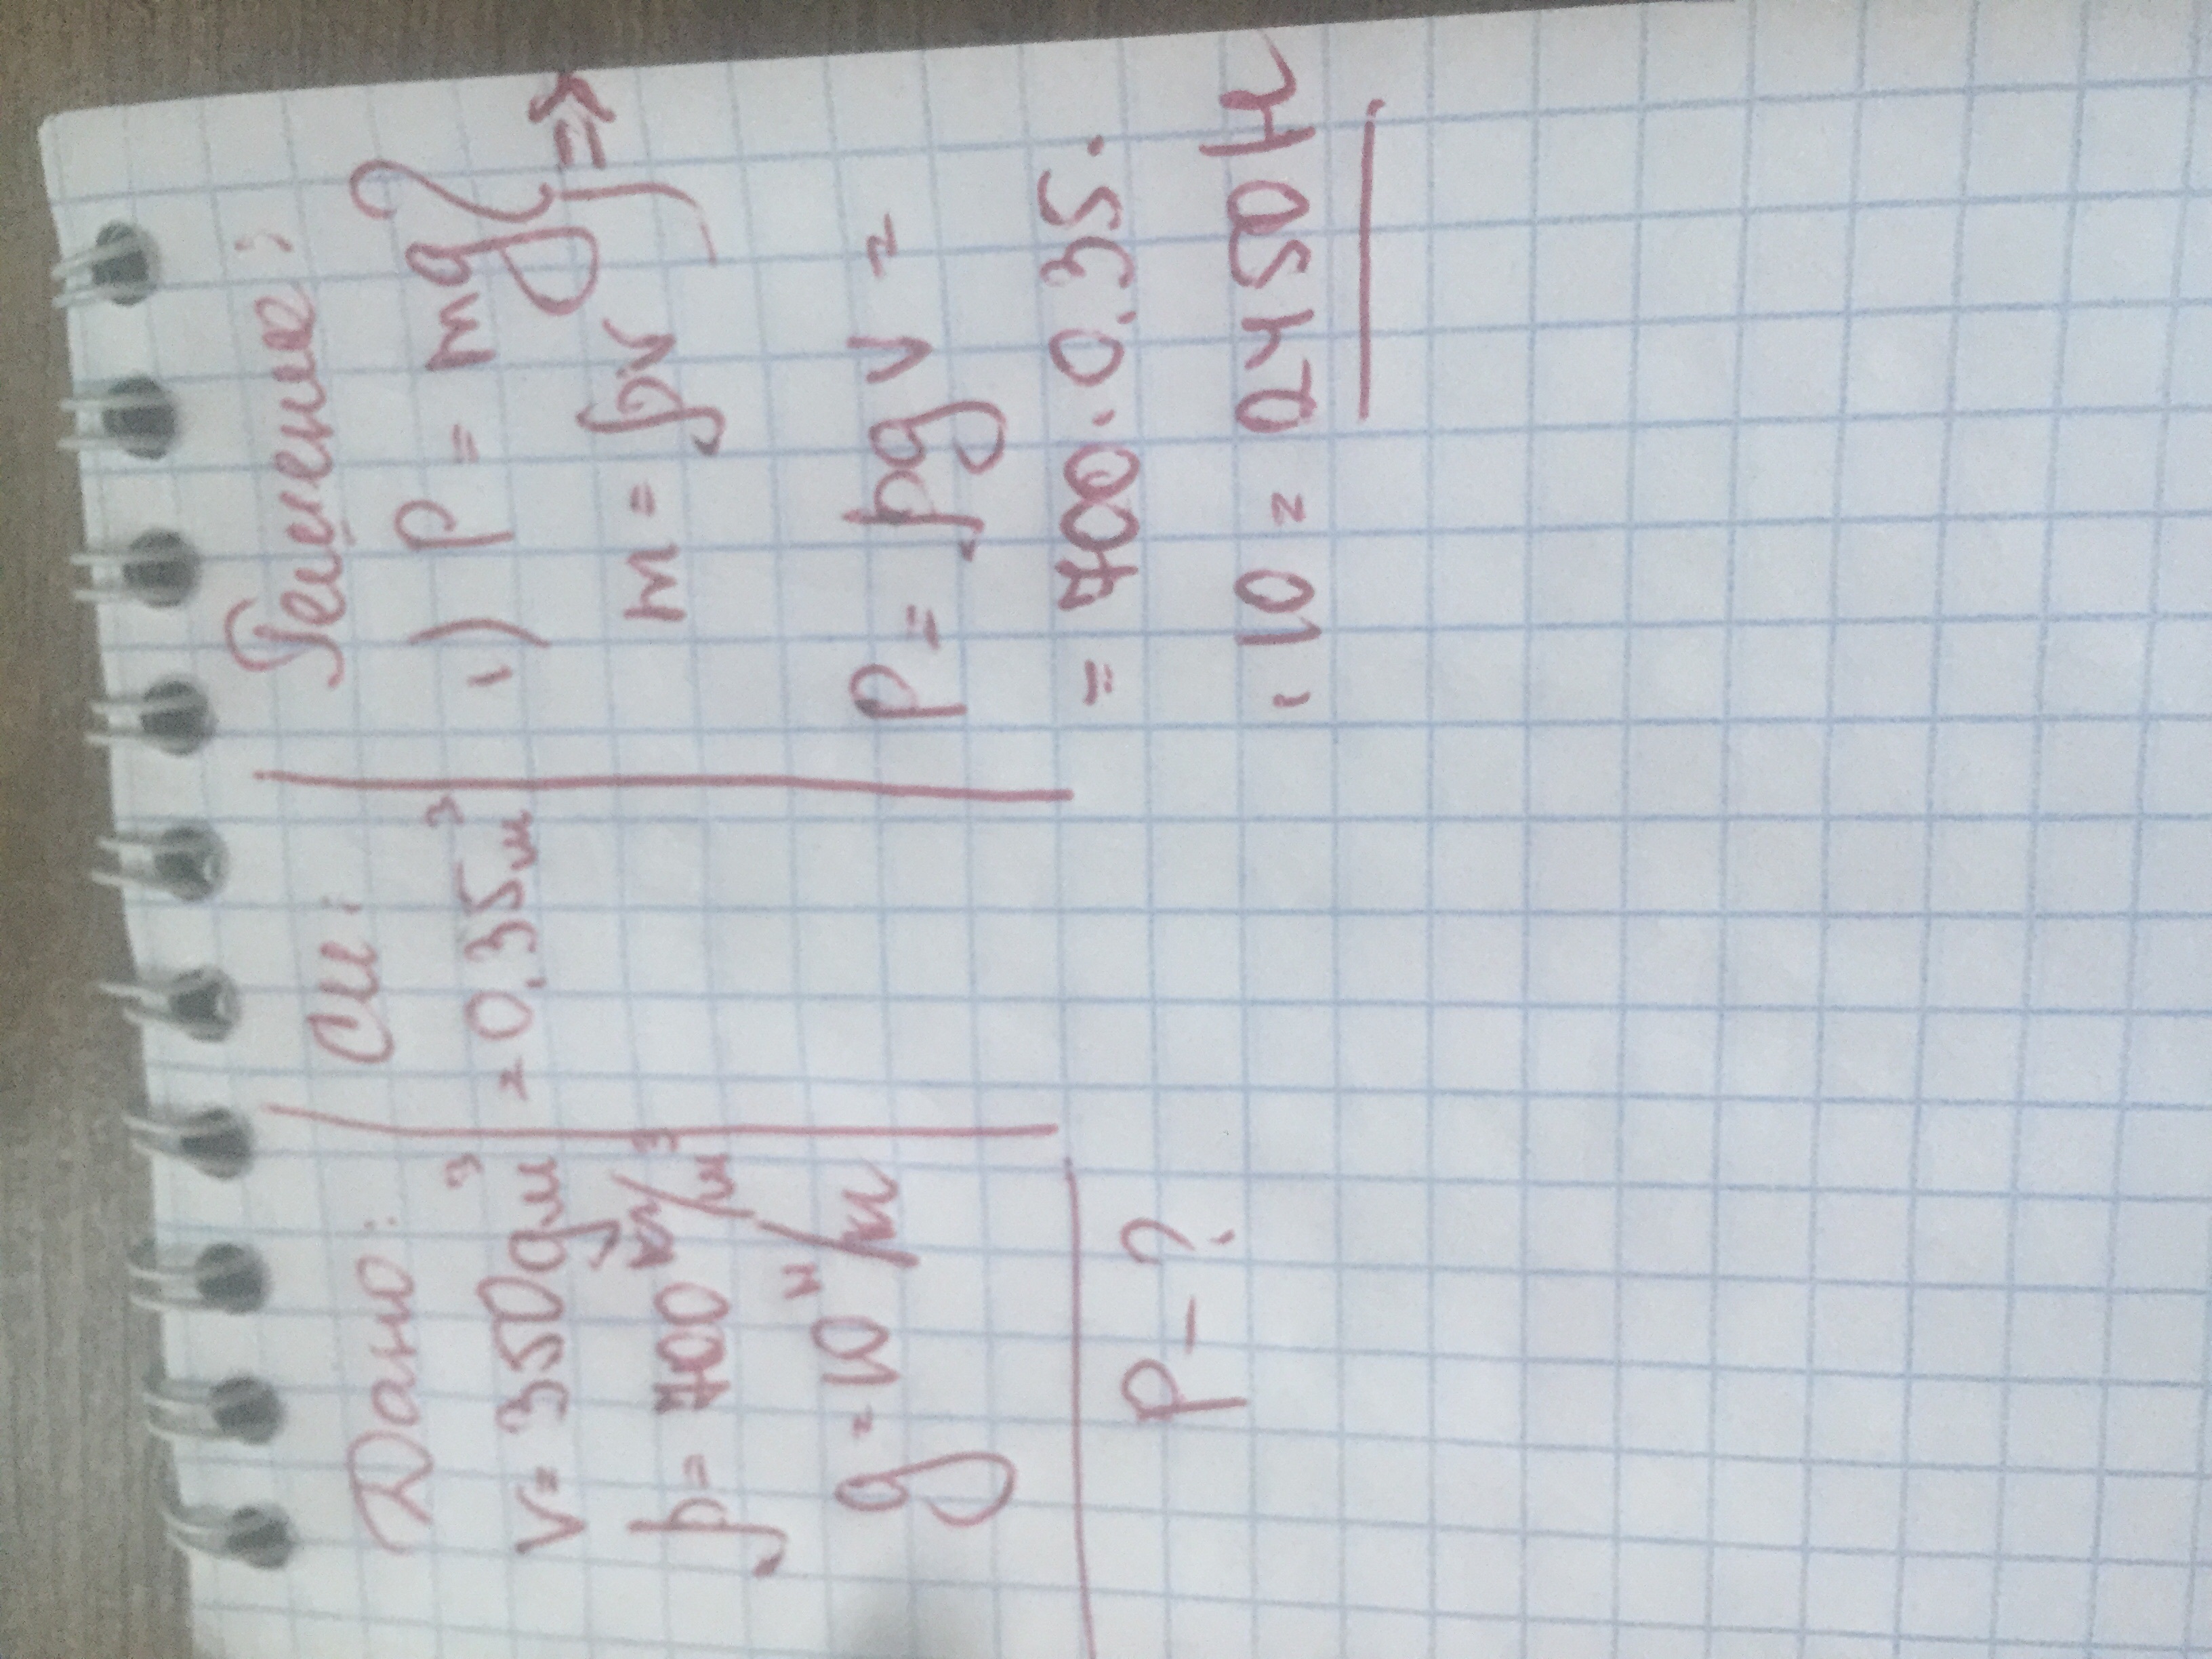 Дано:
V = 350 дм³
ρ = 700 кг/м³
g = 10 Н/кг
P - ?
Си:
= 0.35 м³
Решение:
1) P = mg } =>
m = ρV
P = ρgV =
= 700 · 0.35 ·
· 10 = 2450 Н